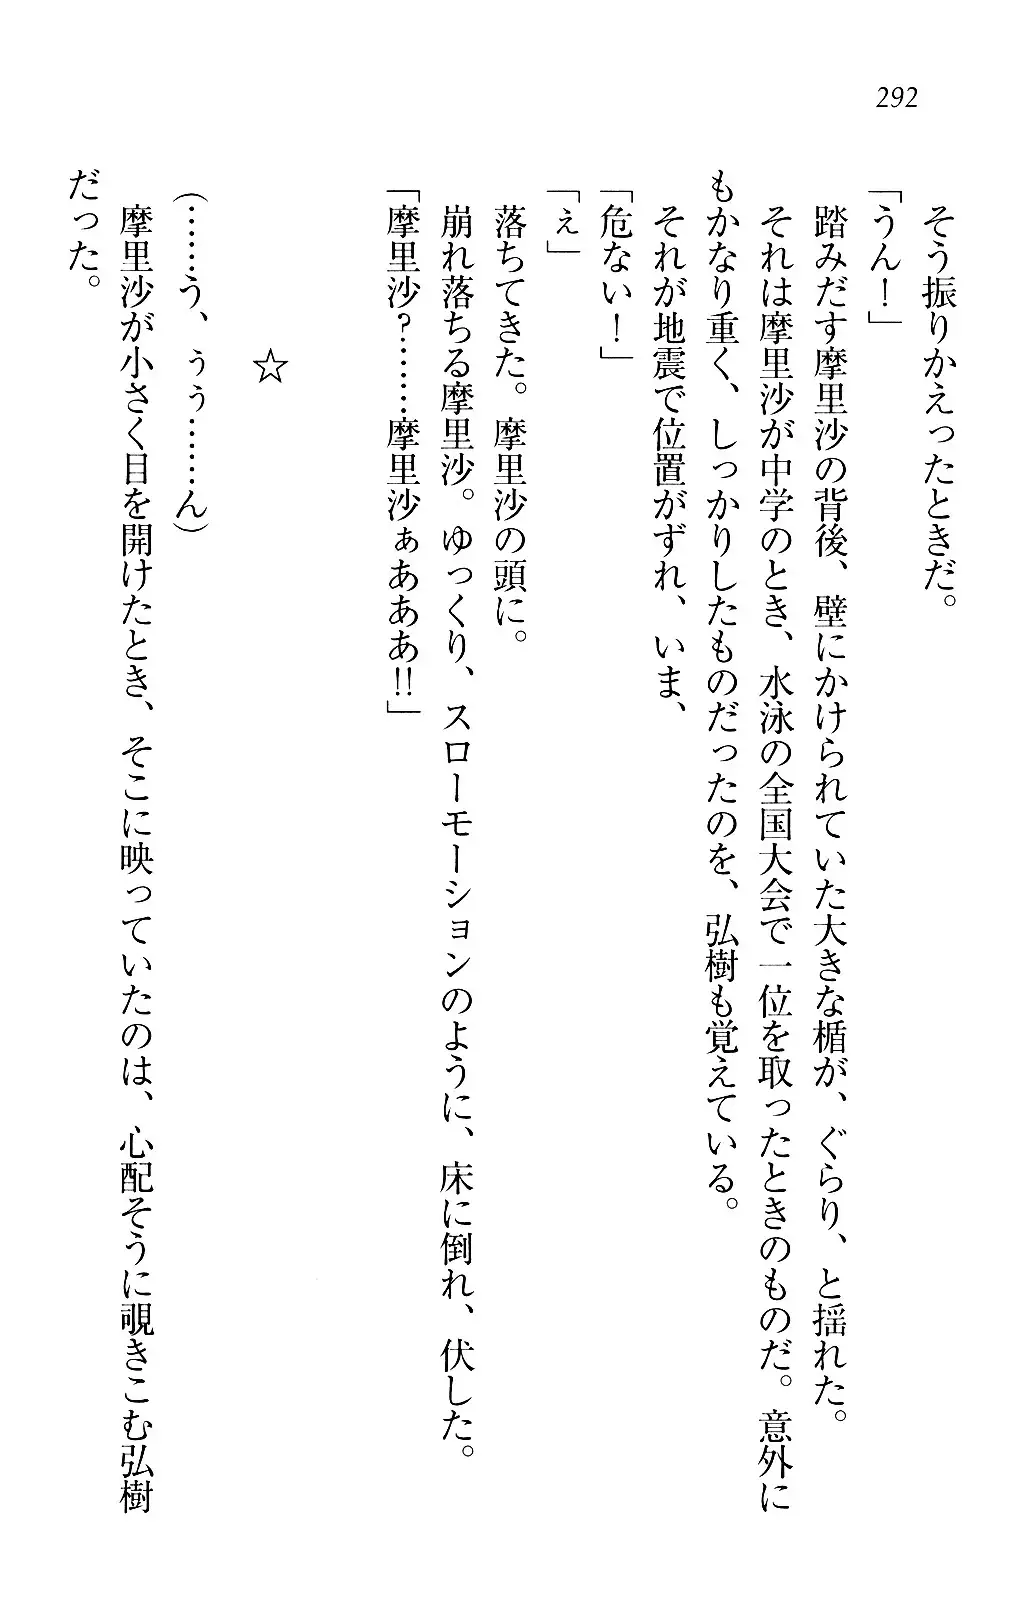 292
そう振りかえったときだ。
「うん！」
踏みだす摩里沙の背後、壁にかけられていた大きな楯が、ぐらり、と揺れた。
それは摩里沙が中学のとき、水泳の全国大会で一位を取ったときのものだ。意外に
もかなり重く、しっかりしたものだったのを、弘樹も覚えている。
それが地震で位置がずれ、いま、
「危ない！」
「ぇ」
落ちてきた。摩里沙の頭に。
崩れ落ちる摩里沙。ゆっくり、スローモーションのように、床に倒れ、伏した。
「摩里沙？……摩里沙ぁあああ!!」
☆
（……う、ぅぅ……ん）
摩里沙が小さく目を開けたとき、そこに映っていたのは、心配そうに覗きこむ弘樹
だった。